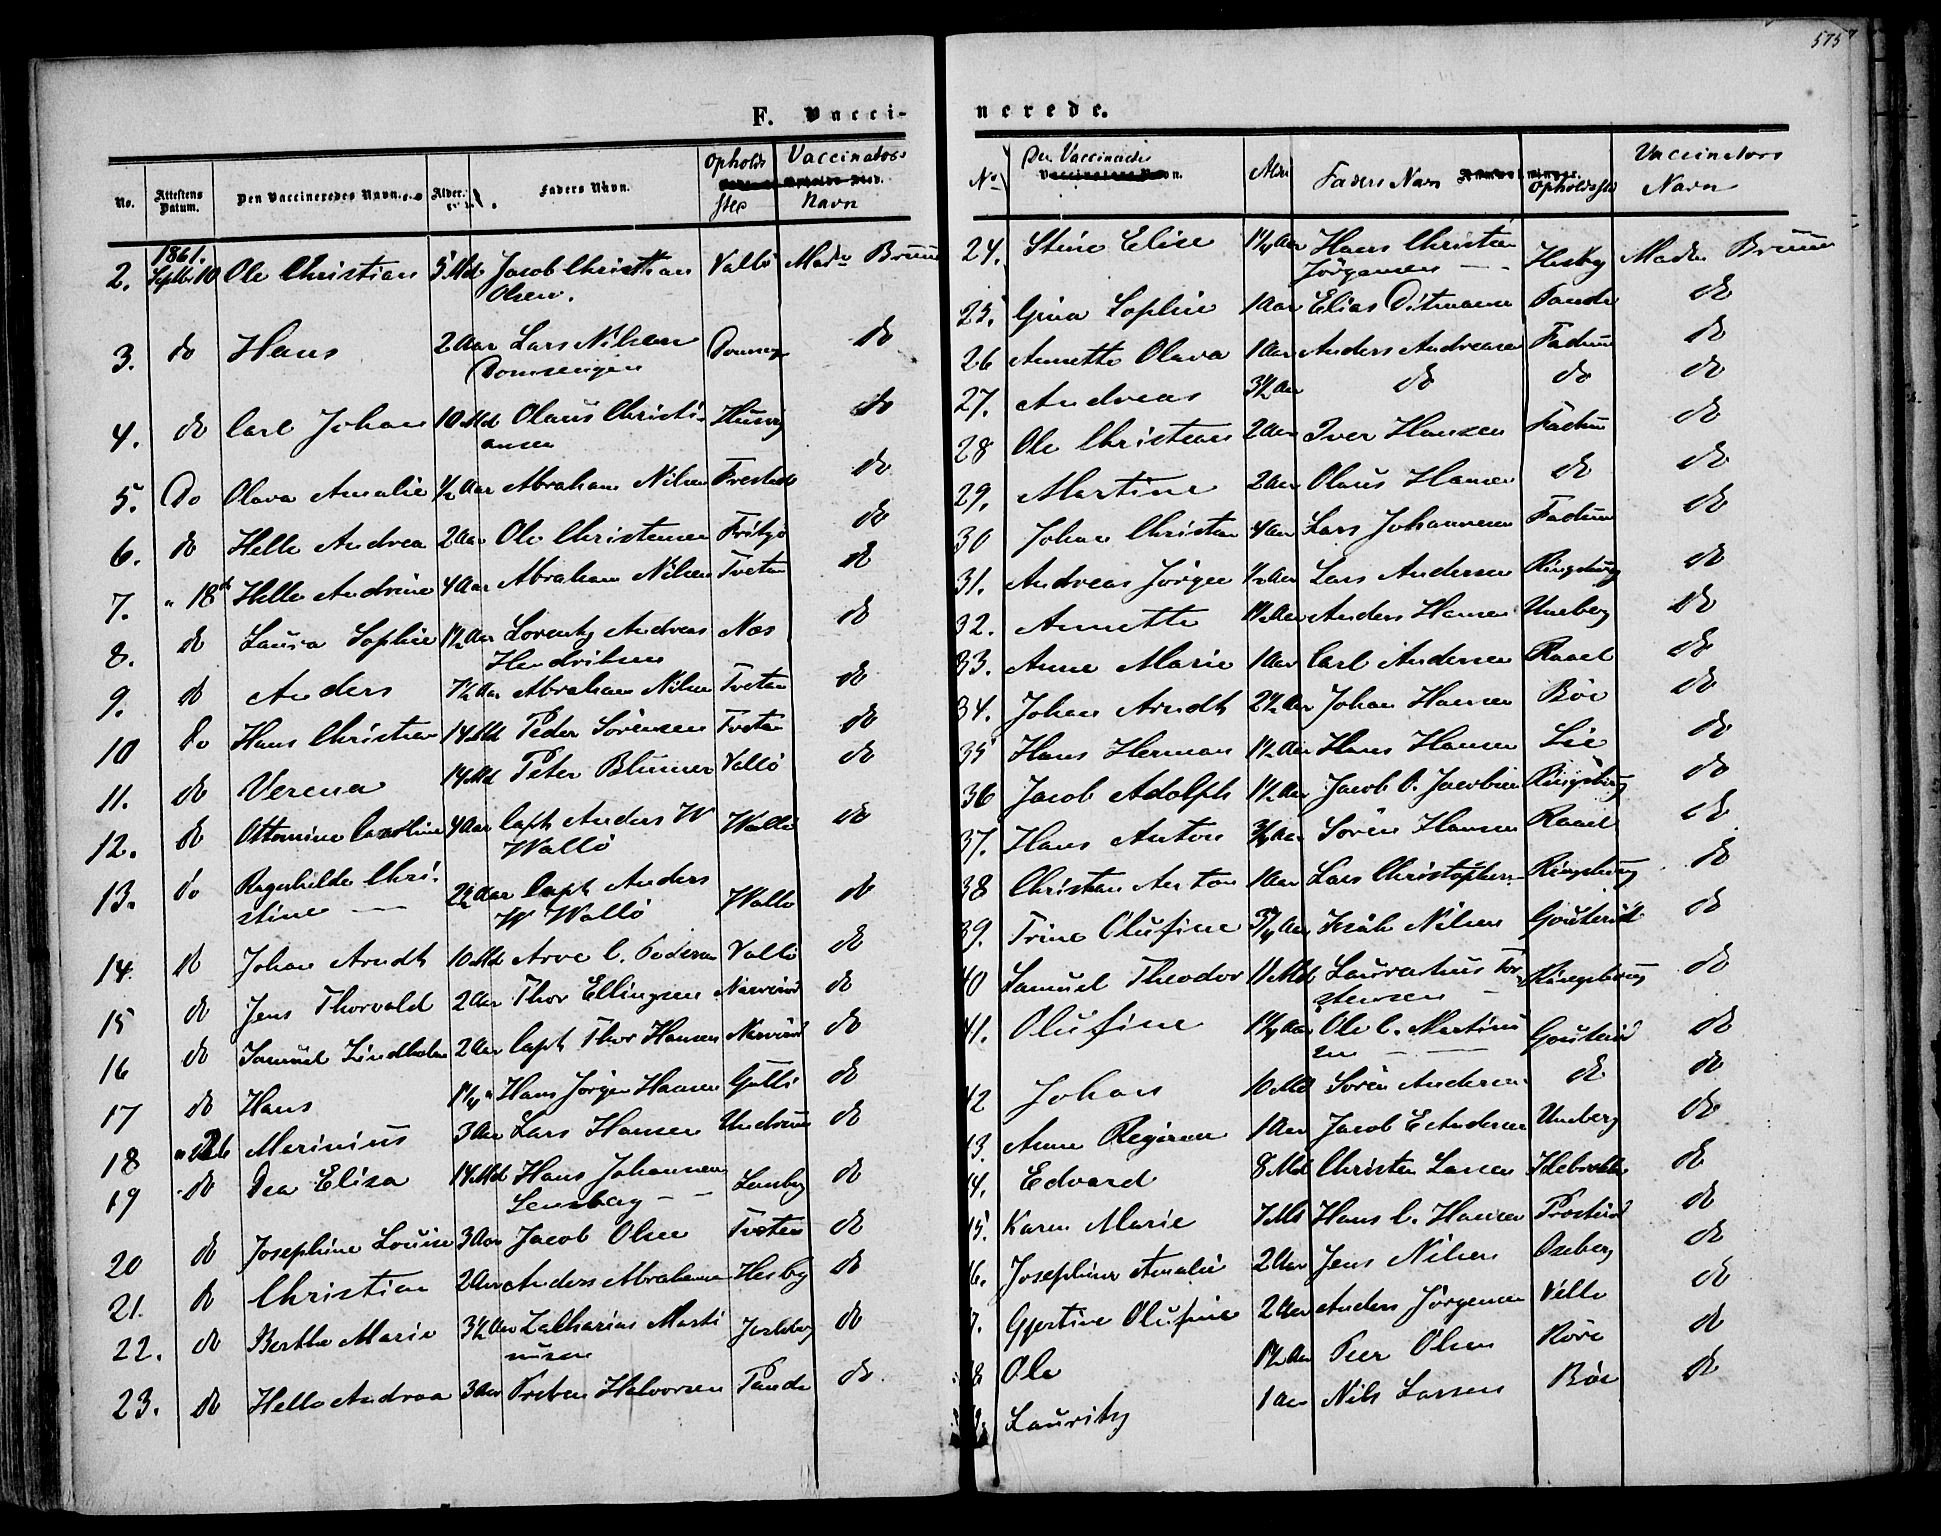 575
F. Vacci-
No. Attestens Datum. Den Vaccineredes Navn. Alder. Faders Navn. Opholds sted Vaccinators Navn
1861.
2. Septbr 10 Ole Christian 5 Md Jacob Christian Vallö Madm Bruun
Olsen.
3. do Hans 2 Aar Lars Nilsen do
Domsengen
4. do Carl Johan 10 Md Olaus Christi- Husvig do
ansen
5. Do Olava Amalie ½ Aar Abraham Nilsen do
6. do Helle Andrea 2 Aar Ole Christensen do
7. " 18de Helle Andrine 4 Aar Abraham Nilsen Tveten do
8. do Laura Sophie 1½ Aar Lorentz Andreas Næs do
Hendriksen
9. do Anders 7½ Aar Abraham Nilsen Tveten do
10 do Hans Christian 14 Md Peder Sörensen Tveten do
11. do Verena 14 Md Peter Blumer Vallö do
12. do Ottomine Caroline 4 Aar Capt Anders W Wallö do
Wallö
13. do Ragnhilde Chri- 2½ Aar Capt Anders Wallö do
stine — W Wallö
14. do Johan Arndt 10 Md Arve C. Pedersen Vallö do
15 do Jens Thorvald 2 Aar Thor Ellingsen do
16 do Samuel Lindholm 2 Aar Capt Thor Hansen do
17 do Hans 1¼ " Hans Jörgen Hansen do
18 " 26 Marinius 3 Aar Lars Hansen Undrum do
19 do Dea Elisa 14 Md Hans Johannsen do
20 do Josephine Louise 3 Aar Jacob Olsen Tveten do
21. do Christian 2 Aar Anders Abrahamsen Hesby do
22. do Berthe Marie 3½ Aar Zacharias Marti do
nusen
23. do Helle Andrea 3 Aar Preben Halvorsen Tande do
nerede.
No Den Vaccineredes Navn. Alder Faders Navn Opholdssted Vaccinators Navn
24. Stine Elise 1¼ Aar Hans Christian Hesby Madm Bruun
Jörgensen —
25. Gina Sophie 1 Aar Elias Ditmansen Tande do
26 Annette Olava 1 Aar Anders Andreasen Fadum do
27. Andreas 3½ Aar do do do
28 Ole Christian 2 Aar Iver Hansen Fadum do
29. Martine 2 Aar Olaus Hansen do do
30 Johan Christian 4 Aar Lars Johannesen Fadum do
31. Andreas Jörgen ½ Aar Lars Andersen Ringshaug do
32. Annette 1½ Aar Anders Hansen Uneberg do
33. Anne Marie 1 Aar Carl Andersen Raael do
34. Johan Arndt 2½ Aar Johan Hansen Böe do
35 Hans Herman 1½ Aar Hans Hansen Lie do
36 Jacob Adolph 1½ Aar Jacob O. Jacobsen Ringshaug do
37. Hans Anton ¾ Aar Sören Hansen Raael do
38 Christian Anton 1 Aar Lars Christophersen Ringshaug do
39. Trine Olufine 5/4 Aar Nilsen do
40 Samuel Theodor 11 Md Laurentius Tor- Ringshaug do
stensen —
41. Olufine 1¼ Aar Ole C. Martins do
en —
42 Johan 10 Md Sören Andersen do do
3. Anne Regine 1 Aar Jacob E Andersen Uneberg do
4. Edvard 8 Md Christen Larsen do
5. Karen Marie 7 Md Hans C. Hansen do
6. Josephine Amalie 2 Aar Jens Nilsen Oseberg do
7. Gjertine Olufine 2 Aar Anders Jörgensen Velle do
8 Ole 1½ Aar Peer Olsen Röre do
Lauritz 1 Aar Nils Larsen Böe do